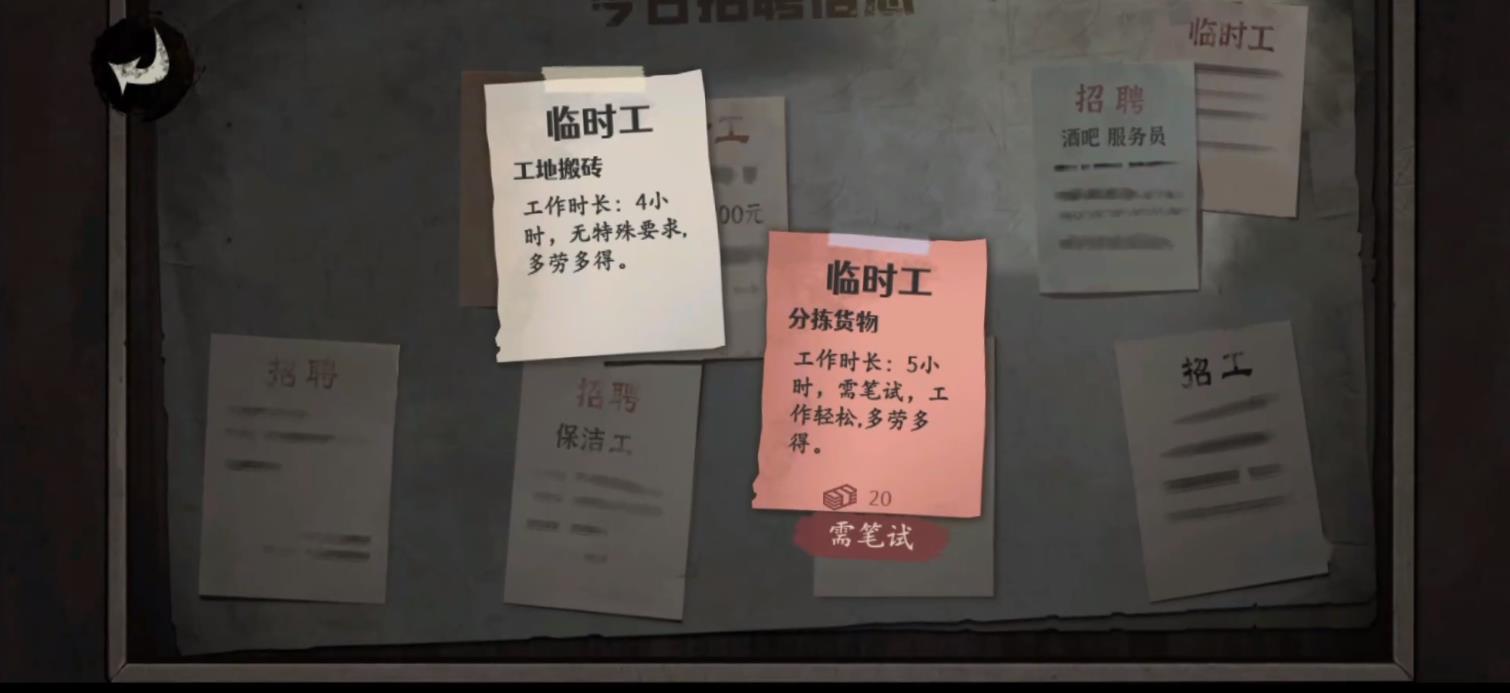 今日招聘信息
临时工
工地搬砖
工作时长：4小
时，无特殊要求，
多劳多得。
工
00元
临时工
分拣货物
工作时长：5小
时，需笔试，工
作轻松，多劳多
得。
20
需笔试
临时工
招聘
酒吧 服务员
招聘
招聘
保洁工
招工